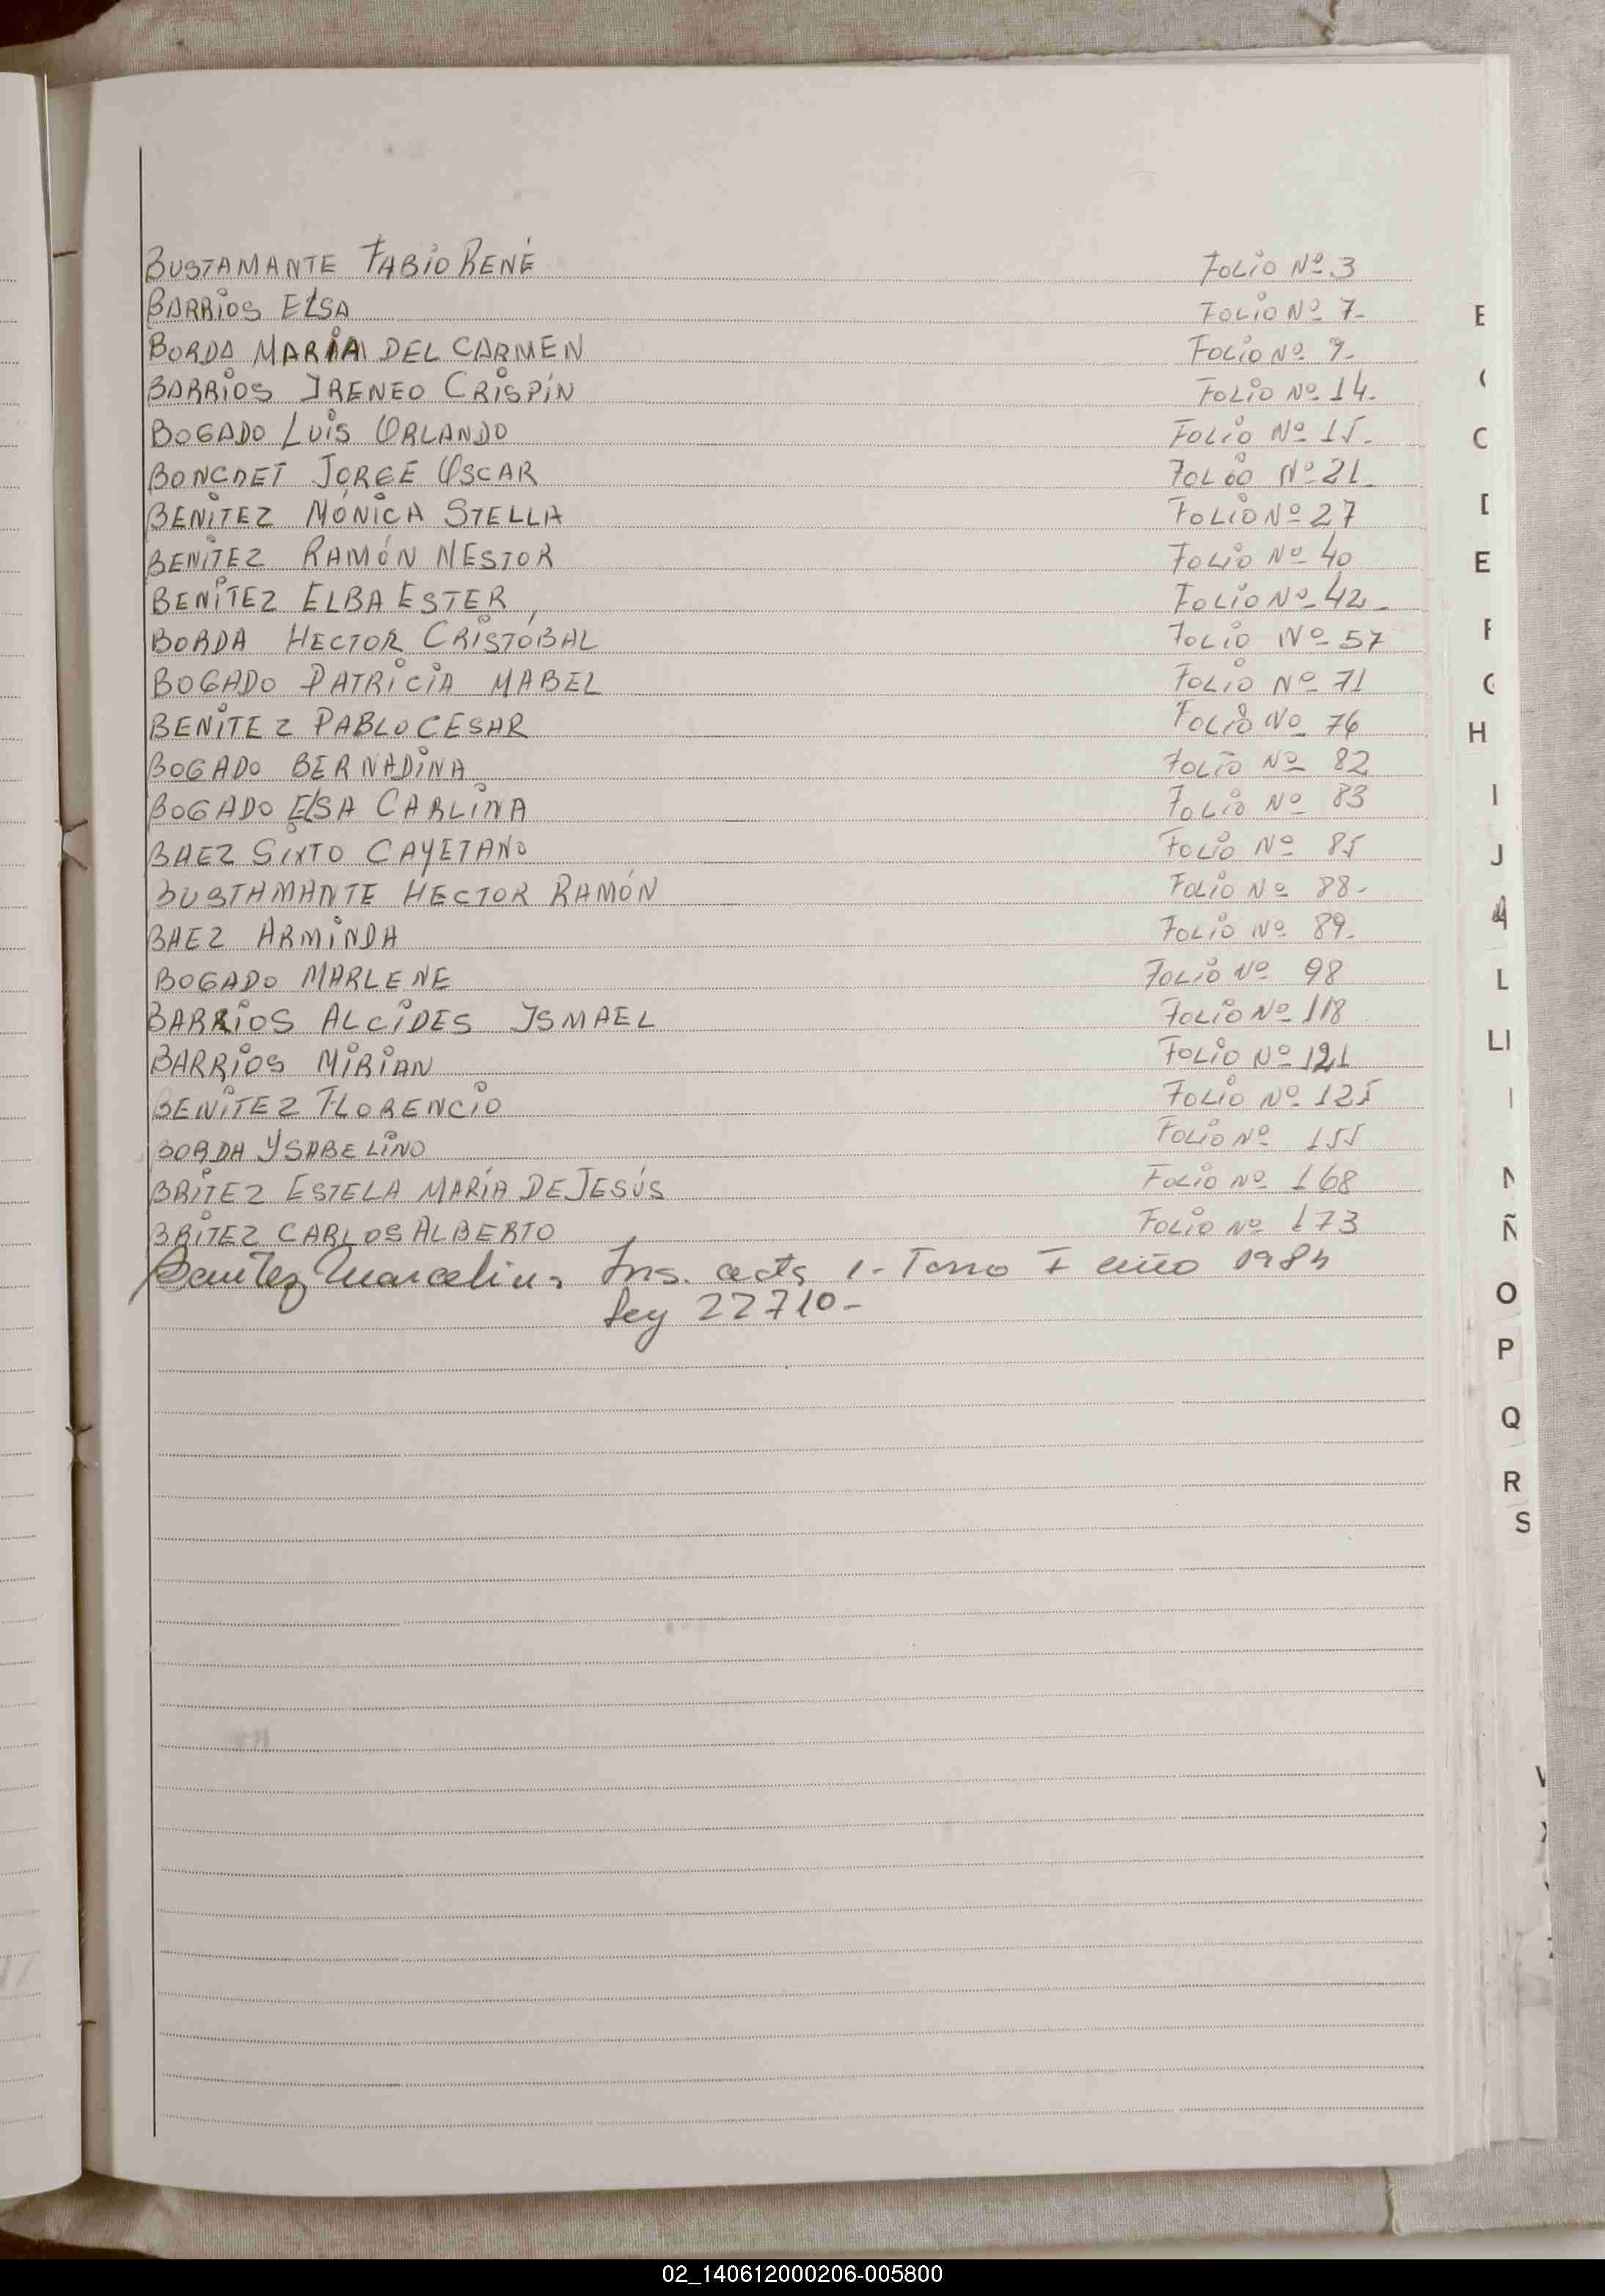 BUSTAMANTE FABIO RENÉ FOLIO Nº 3
BARRIOS ELSA FOLIO Nº 7-
BORDA MARÍA DEL CARMEN FOLIO Nº 9-
BARRIOS IRENEO CRISPÍN FOLIO Nº 14-
BOGADO LUIS ORLANDO FOLIO Nº 15-
BONCDET JORGE OSCAR FOLIO Nº 21-
BENITEZ MÓNICA STELLA FOLIO Nº 27
BENITEZ RAMÓN NESTOR FOLIO Nº 40
BENITEZ ELBA ESTER FOLIO Nº 42-
BORDA HECTOR CRISTÓBAL FOLIO Nº 57
BOGADO PATRICIA MABEL FOLIO Nº 71
BENITEZ PABLO CESAR FOLIO Nº 76
BOGADO BERNADINA FOLIO Nº 82
BOGADO ELSA CARLINA FOLIO Nº 83
BAEZ SIXTO CAYETANO FOLIO Nº 85
BUSTAMANTE HECTOR RAMÓN FOLIO Nº 88-
BAEZ ARMINDA FOLIO Nº 89-
BOGADO MARLENE FOLIO Nº 98
BARRIOS ALCIDES ISMAEL FOLIO Nº 118
BARRIOS MIRIAN FOLIO Nº 121
BENITEZ FLORENCIO FOLIO Nº 125
BORDA YSABELINO FOLIO Nº 155
BRITEZ ESTELA MARÍA DE JESÚS FOLIO Nº 168
BRITEZ CARLOS ALBERTO FOLIO Nº 173
Benitez Marcelino Ins. acta 1- Tomo I año 1984
Ley 22710-
E
C
E
F
H
I
J
L
Ll
N
Ñ
O
P
Q
R
S
02_140612000206-005800